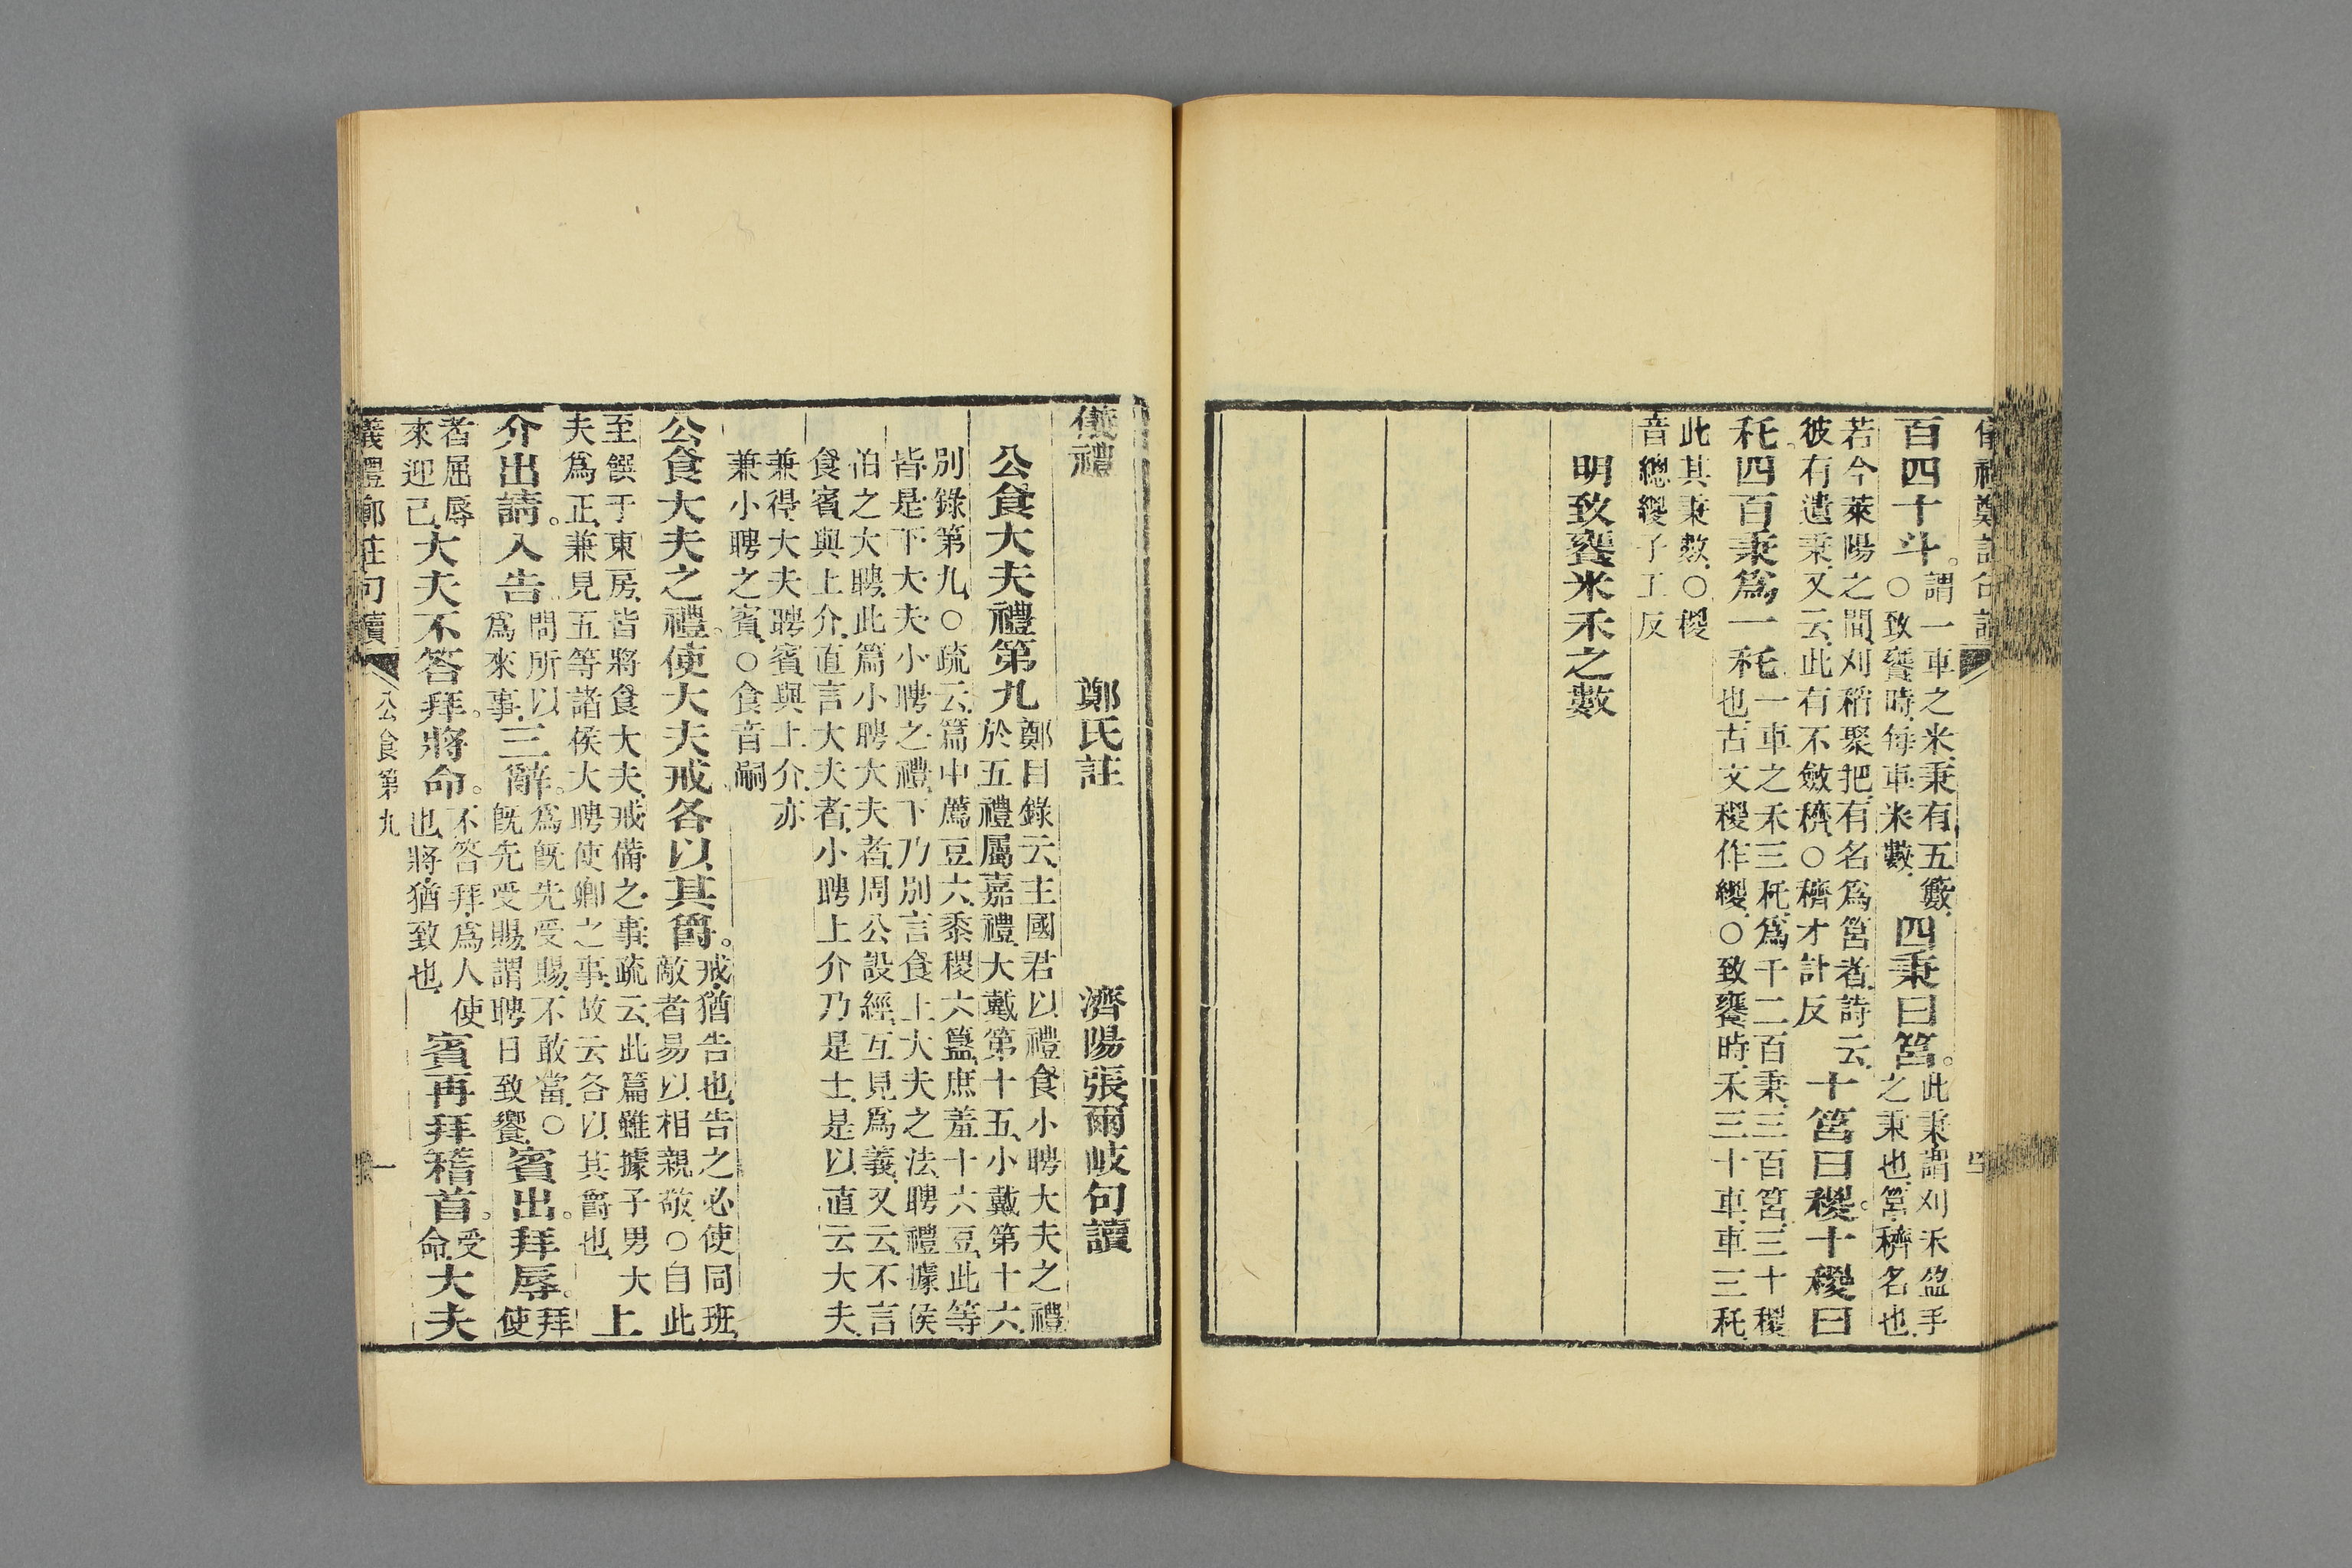 百四十斗。謂一車之米秉有五籔
○致饔時每車米數四秉曰筥。此秉謂刈禾盈手
之秉也筥穧名也
若今萊陽之間刈稻聚把有名爲筥者詩云
彼有遺秉又云此有不斂穧○穧才計反十筥曰稯。十稯曰
秅。四百秉爲一秅一車之禾三秅爲千二百秉三百筥三十稯
也古文稯作緵○致饔時禾三十車車三秅
此其秉數○稯
音緫緵子工反
明致饔米禾之數
儀禮 鄭氏註 濟陽張爾岐句讀
公食大夫禮第九鄭目錄云主國君以禮食小聘大夫之禮
於五禮屬嘉禮大戴第十五小戴第十六
別錄第九○疏云篇中薦豆六黍稷六簋庶羞十六豆此等
皆是下大夫小聘之禮下乃別言食上大夫之法聘禮據侯
伯之大聘此篇小聘大夫者周公設經互見爲義又云不言
食賓與上介直言大夫者小聘上介乃是士是以直云大夫
兼得大夫聘賓與上介亦
兼小聘之賓○食音嗣
公食大夫之禮。使大夫戒各以其爵。戒猶告也告之必使同班
敵者易以相親敬○自此
至饌于東房皆將食大夫戒備之事疏云此篇雖據子男大
夫爲正兼見五等諸侯大聘使卿之事故云各以其爵也上
介出請。入告。問所以
爲來事三辭。爲旣先受賜不敢當○
旣先受賜謂聘日致饗賓出。拜辱。拜
使
者屈辱
來迎己大夫不答拜。將命。不答拜爲人使
也將猶致也賓再拜稽首。受
命大夫
儀禮鄭註句讀 公食第九 一